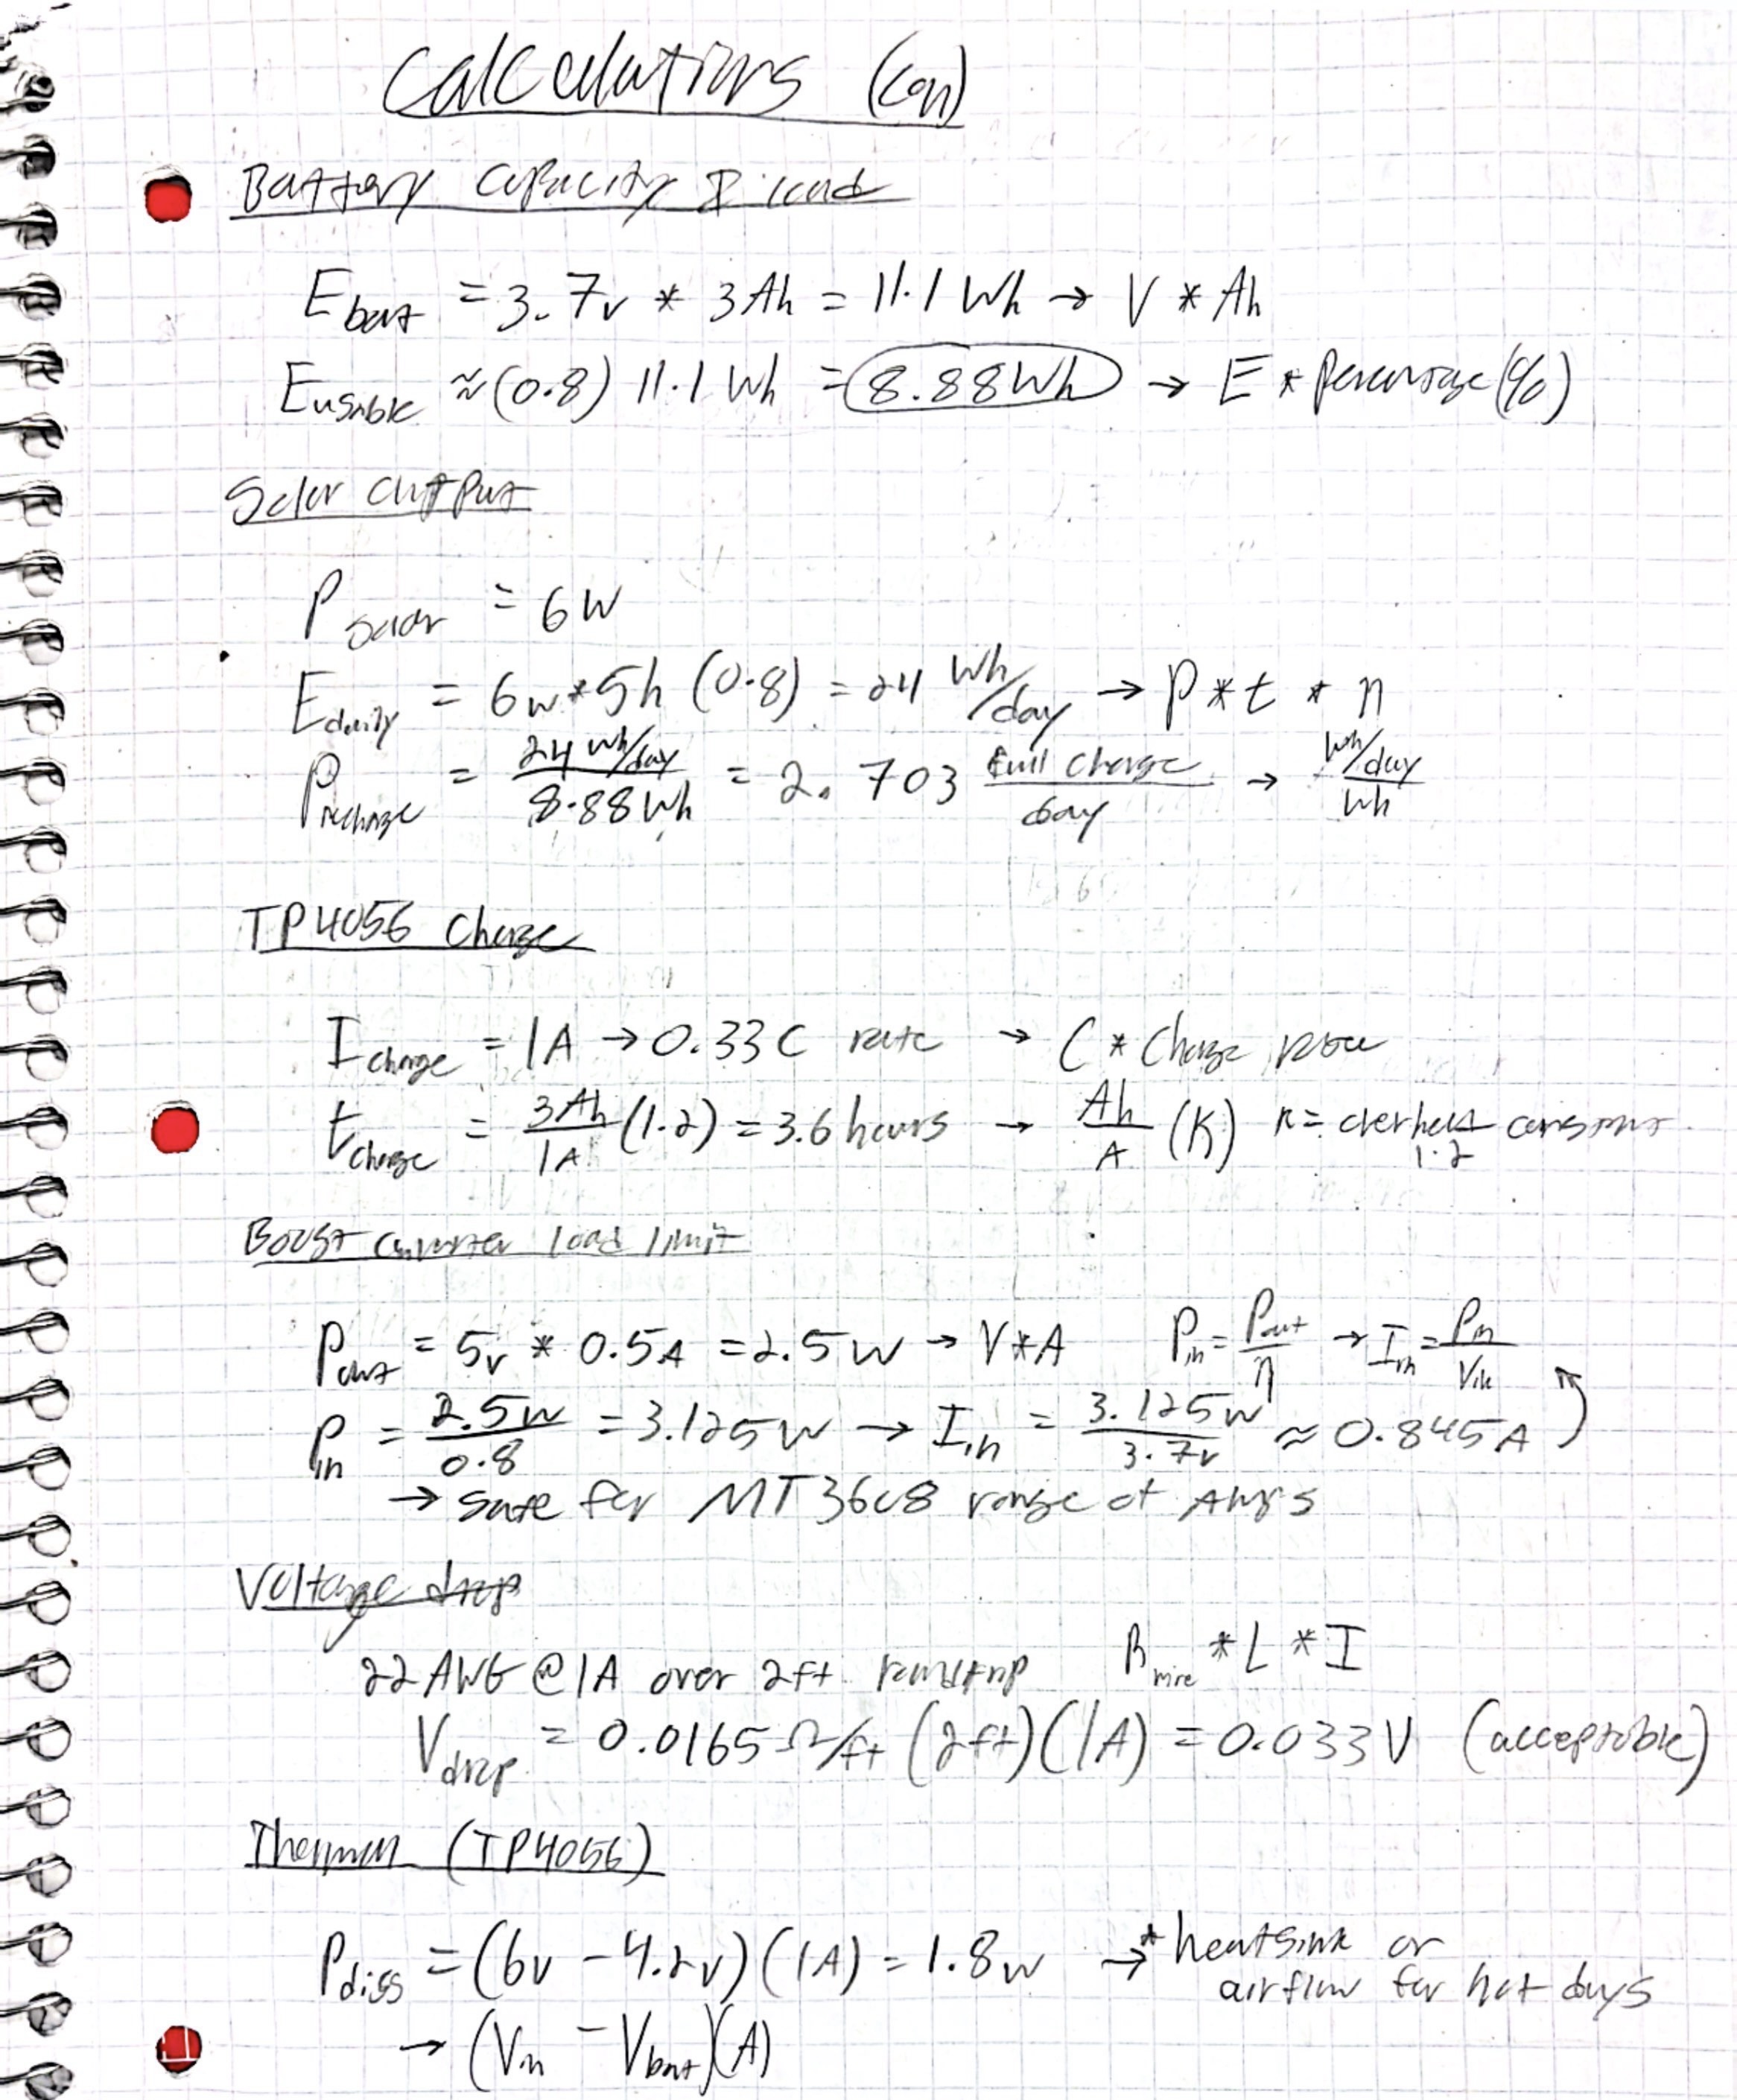 Calculations (con)
Battery capacity & load
E_batt = 3.7v * 3Ah = 11.1 Wh → V * Ah
E_usable ≈ (0.8) 11.1 Wh = 8.88Wh → E * Percentage (%)
Solar output
P_solar = 6W
E_daily = 6w*5h (0.8) = 24 Wh/day → P * t * η
P_recharge = 24 Wh/day / 8.88 Wh = 2.703 full charge / day → Wh/day / Wh
TP4056 Charge
I_charge = 1A → 0.33C rate → C * Charge rate
t_charge = 3Ah / 1A (1.2) = 3.6 hours → Ah / A (K) K = overhead constant 1.2
Boost converter load limit
P_out = 5v * 0.5A = 2.5w → V*A P_in = P_out / η → I_in = P_in / V_in
P_in = 2.5w / 0.8 = 3.125w → I_in = 3.125w / 3.7v ≈ 0.845A
→ safe for MT3608 range of Amps
Voltage drop
22AWG @ 1A over 2ft roundtrip R_wire * L * I
V_drop = 0.0165 Ω/ft (2ft)(1A) = 0.033V (acceptable)
Thermal (TP4056)
P_diss = (6v - 4.2v)(1A) = 1.8w → * heatsink or
airflow for hot days
→ (V_in - V_bat)(A)